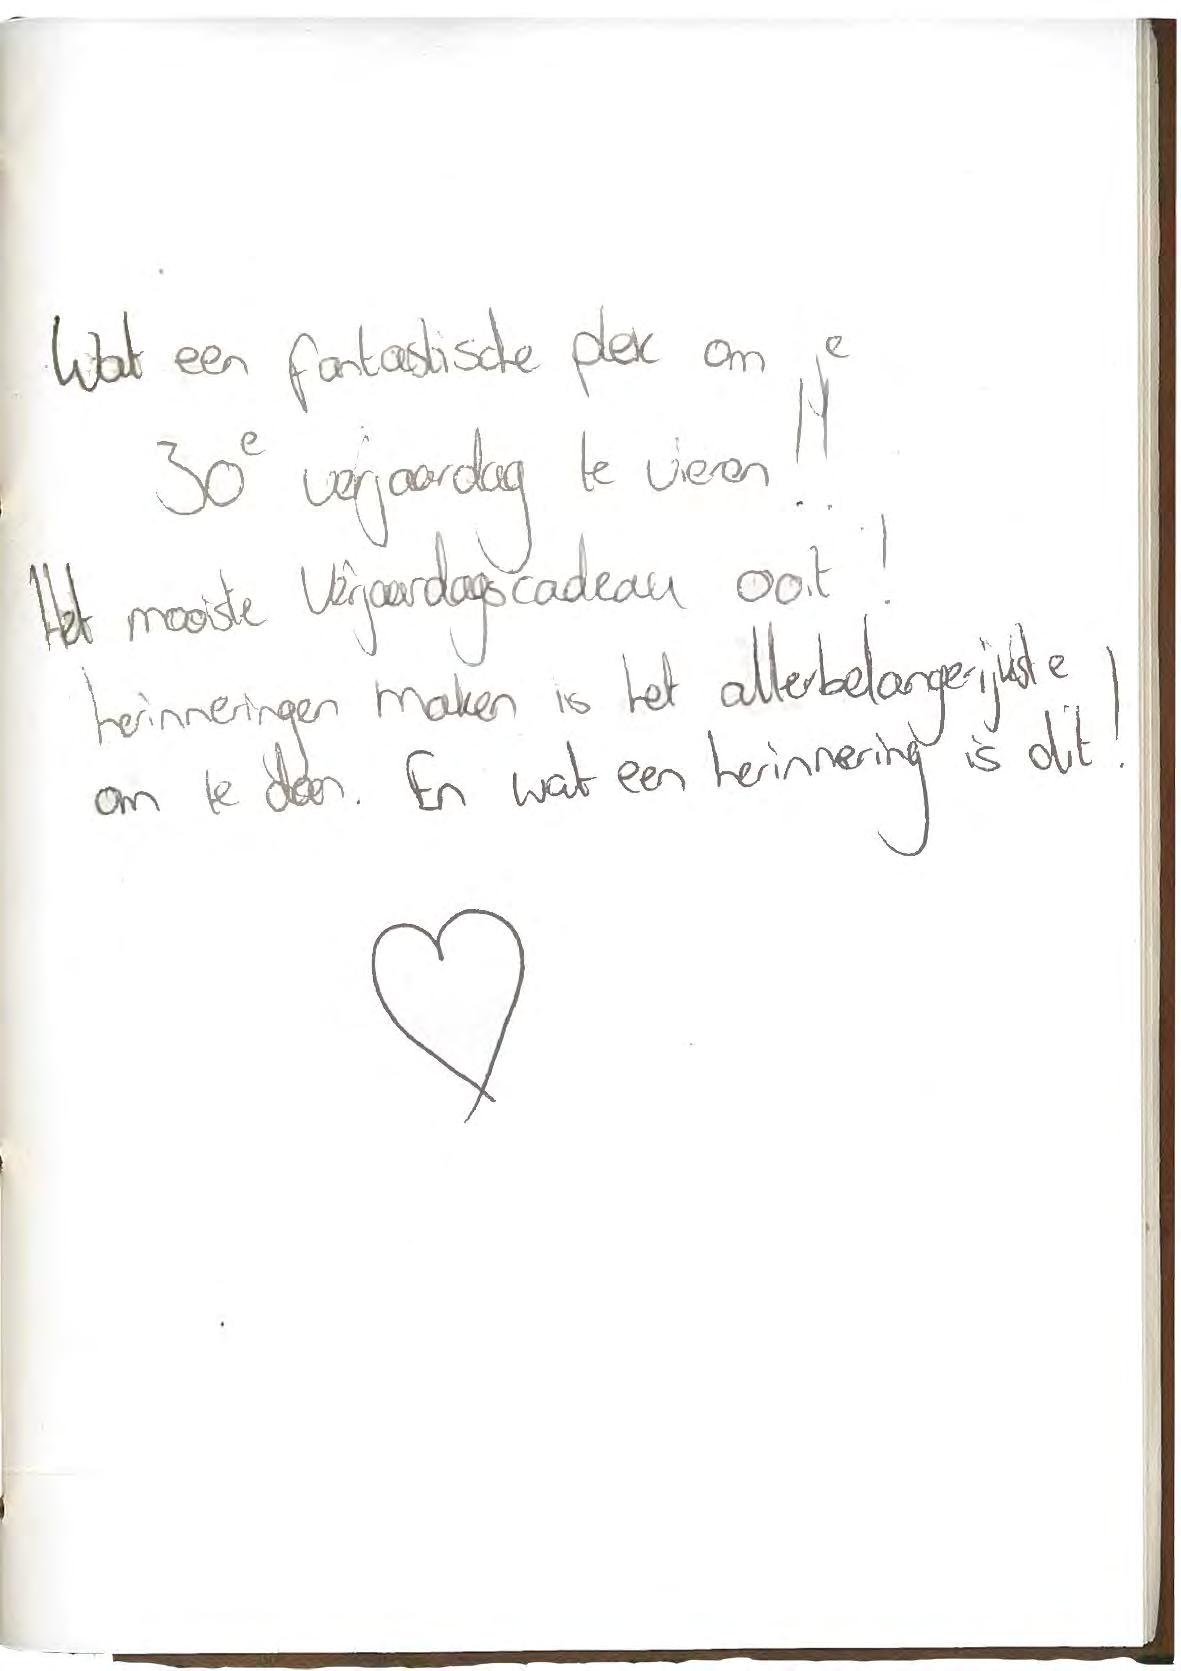 Wat een fantastische plek om je
30e verjaardag te vieren!!
Het mooiste Verjaardagscadeau ooit!
herinneringen maken is het allerbelangerijkste
om te doen. En wat een herinnering is dit!